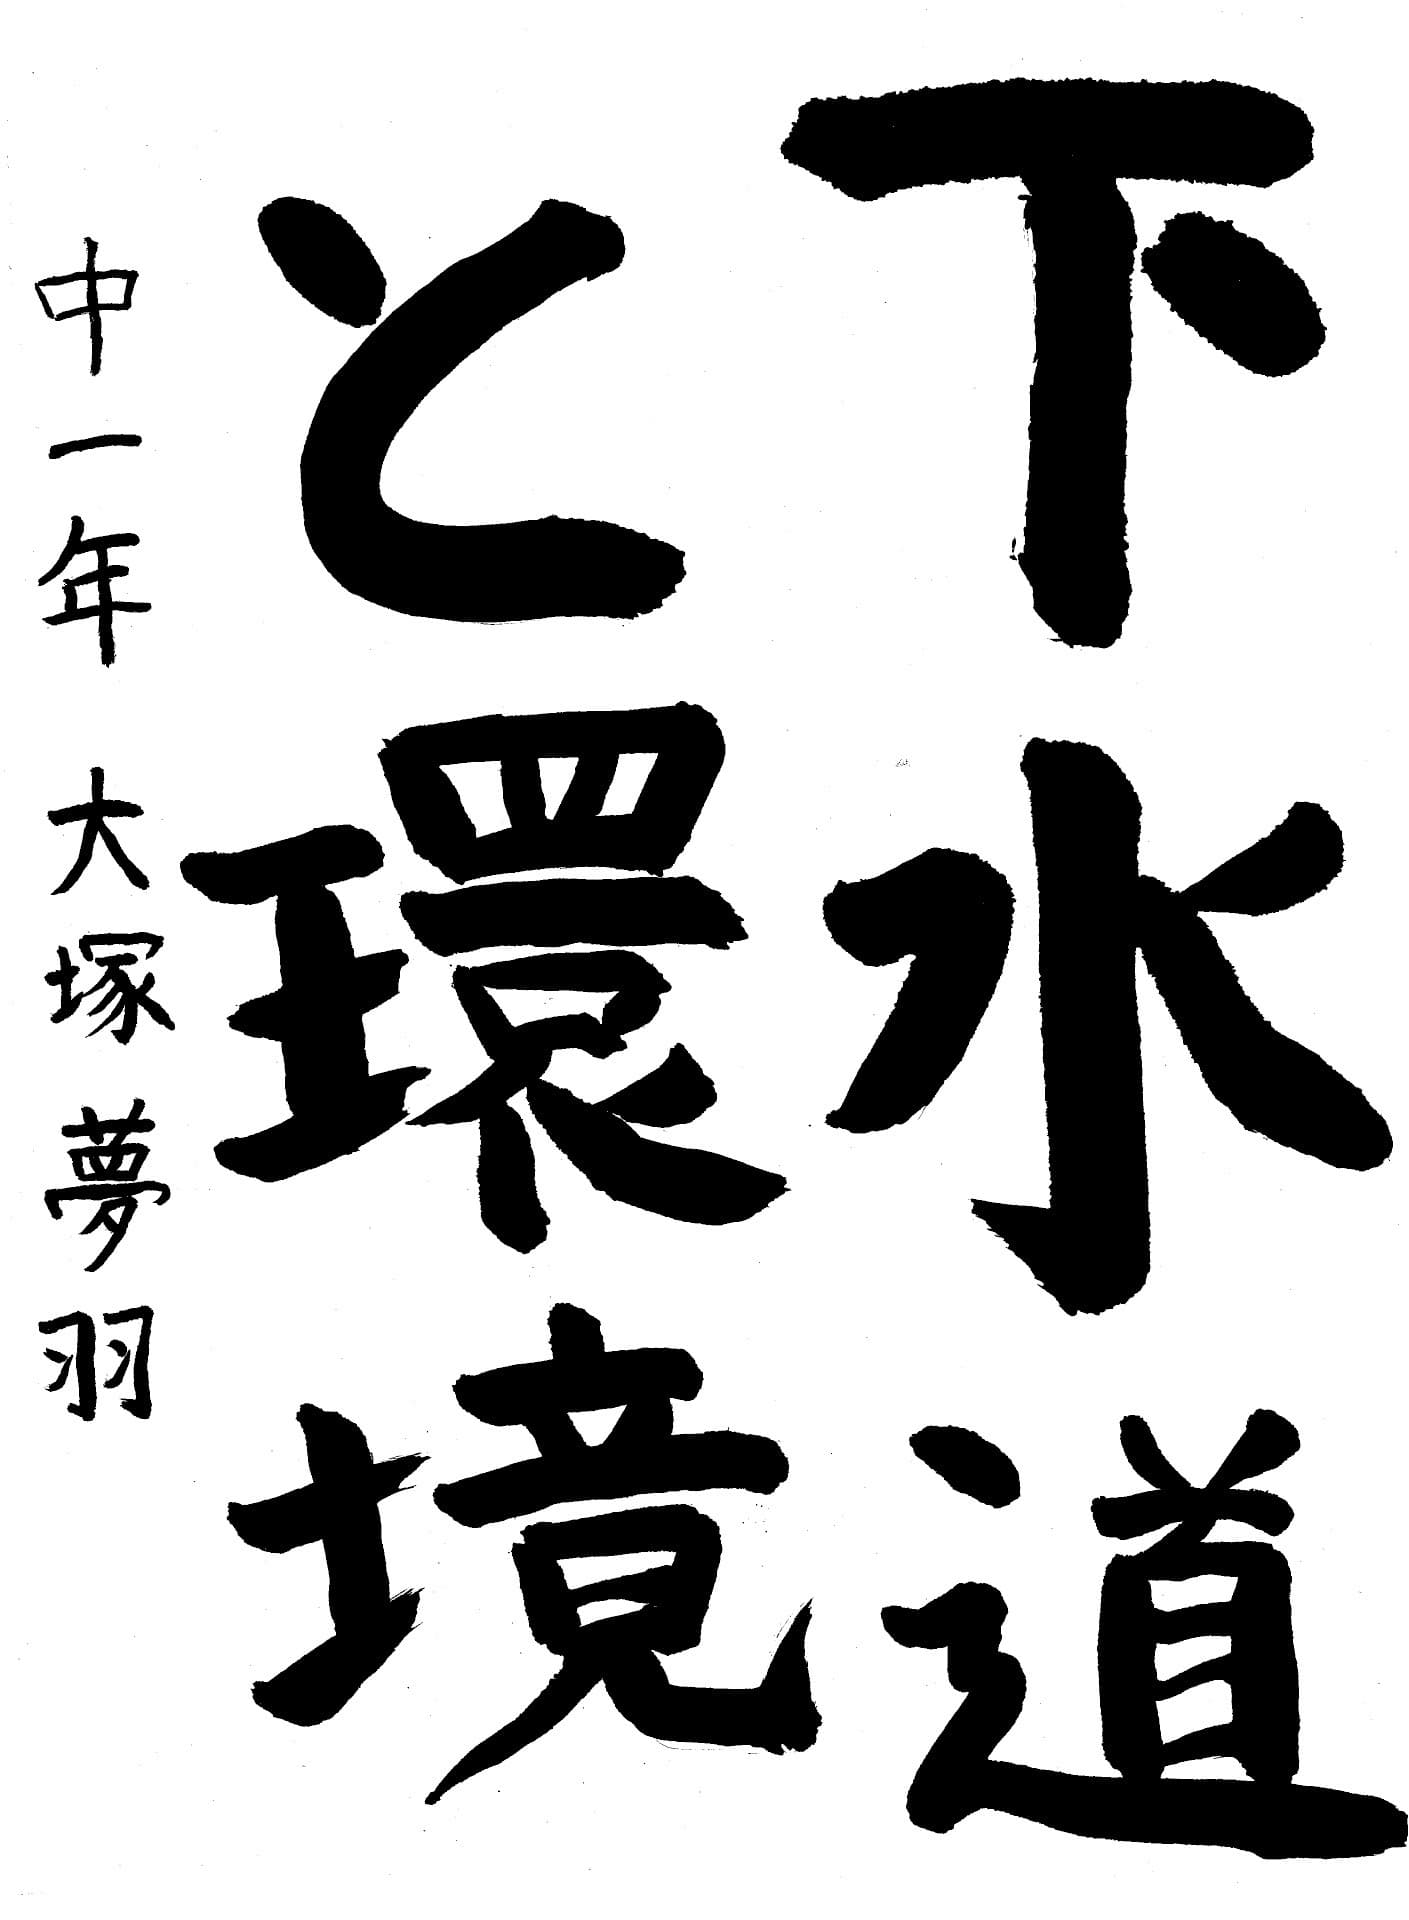 下水道
と環境
中一年 大塚夢羽